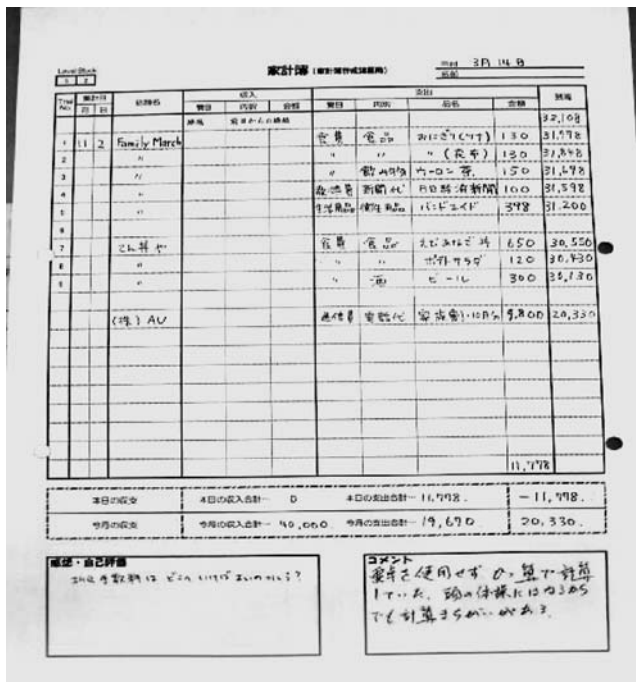 Level Block
1 2
家計簿 (家計簿作成課題用)
3月 14日
Trial No. 集計日 店舗名 収入 支出 残高
月 日 費目 内訳 金額 費目 内訳 品名 金額
前月からの繰越 32,108
1 11 2 Family March 食費 食品 おにぎり(ツナ) 130 31,978
2 〃 〃 〃 〃 130 31,848
3 〃 〃 飲み物 ウーロン茶 150 31,698
4 〃 新聞代 日経済新聞 100 31,598
5 〃 生活用品 衛生用品 バンドエイド 398 31,200
6
7 てん丼や 食費 食品 650 30,550
8 〃 〃 〃 ポテトサラダ 120 30,430
9 〃 〃 酒 ビール 300 30,130
(株)AU 通信費 電話代 家族割・10月分 9,800 20,330
11,778
本日の収支 本日の収入合計― 0 本日の支出合計― 11,778. -11,778.
今月の収支 今月の収入合計― 40,000. 今月の支出合計― 19,670 20,330.
感想・自己評価
手数料は どこへ いけばよいのかしら?
コメント
電卓を使用せず ひっ算で計算
していた。頭の体操にはなるから
でも計算まちがいがある。